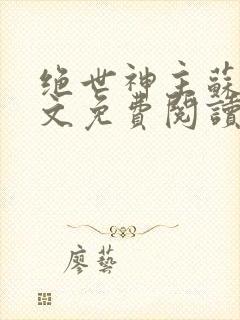 绝世神主蘇
文免費閱讀
廖藝